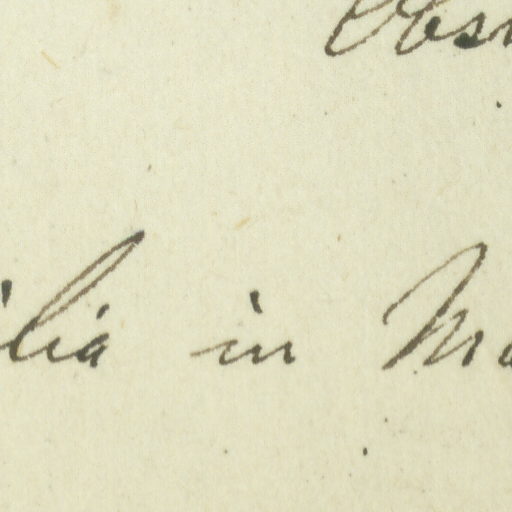 Obs
ilia in Ma